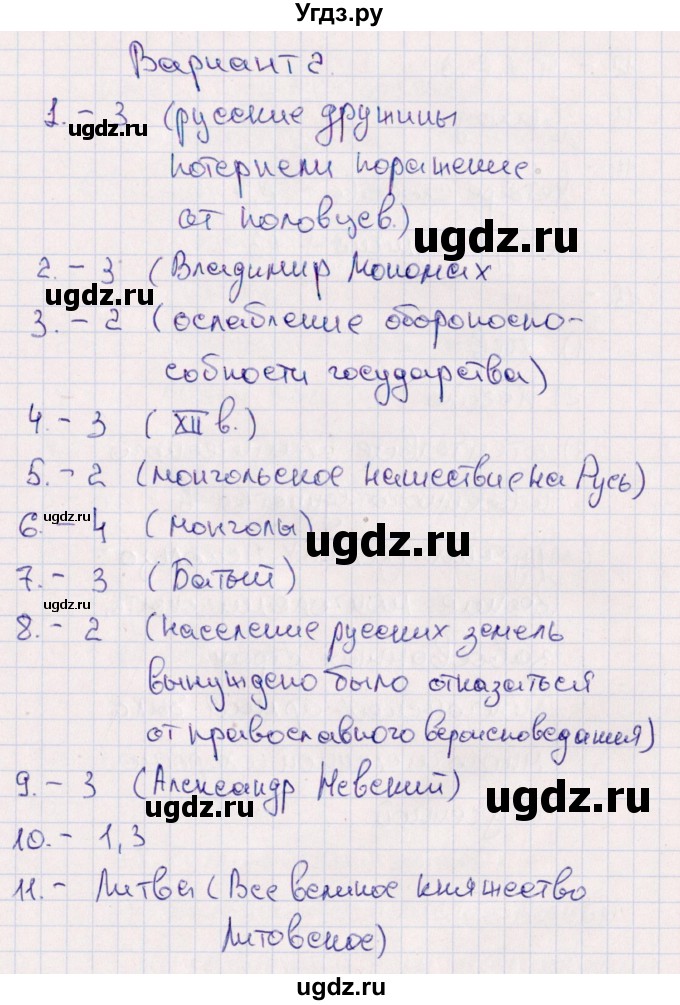 Угдз.ру
Вариант 2.
1. - 3 (русские дружины
ugdz.ru
потерпели поражение
от половцев.)
ugdz.ru
2. - 3 (Владимир Мономах
ugdz.ru
3. - 2 (ослабление обороноспо-
собности государства)
4. - 3 (XII в.)
5. - 2 (монгольское нашествие на Русь)
ugdz.ru
6. - 4 (монголы)
ugdz.ru
7. - 3 (Батый)
ugdz.ru
8. - 2 (население русских земель
вынуждено было отказаться
от православного вероисповедания)
9. - 3 (Александр Невский)
ugdz.ru
10. - 1,3
11. - Литва (Все великое княжество
Литовское)
ugdz.ru